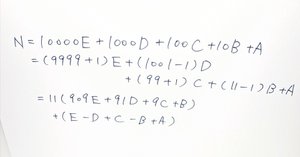 N=10000E+1000D+100C+10B+A
=(9999+1)E+(1001-1)D
+(99+1)C+(11-1)B+A
=11(909E+91D+9C+B)
+(E-D+C-B+A)